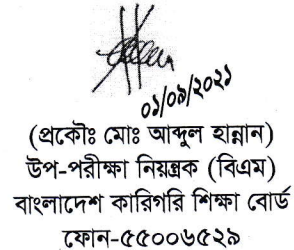 ০১/০৯/২০২১
(প্রকৌঃ মোঃ আব্দুল হান্নান)
উপ-পরীক্ষা নিয়ন্ত্রক (বিএম)
বাংলাদেশ কারিগরি শিক্ষা বোর্ড
ফোন-৫৫০০৬৫২৯